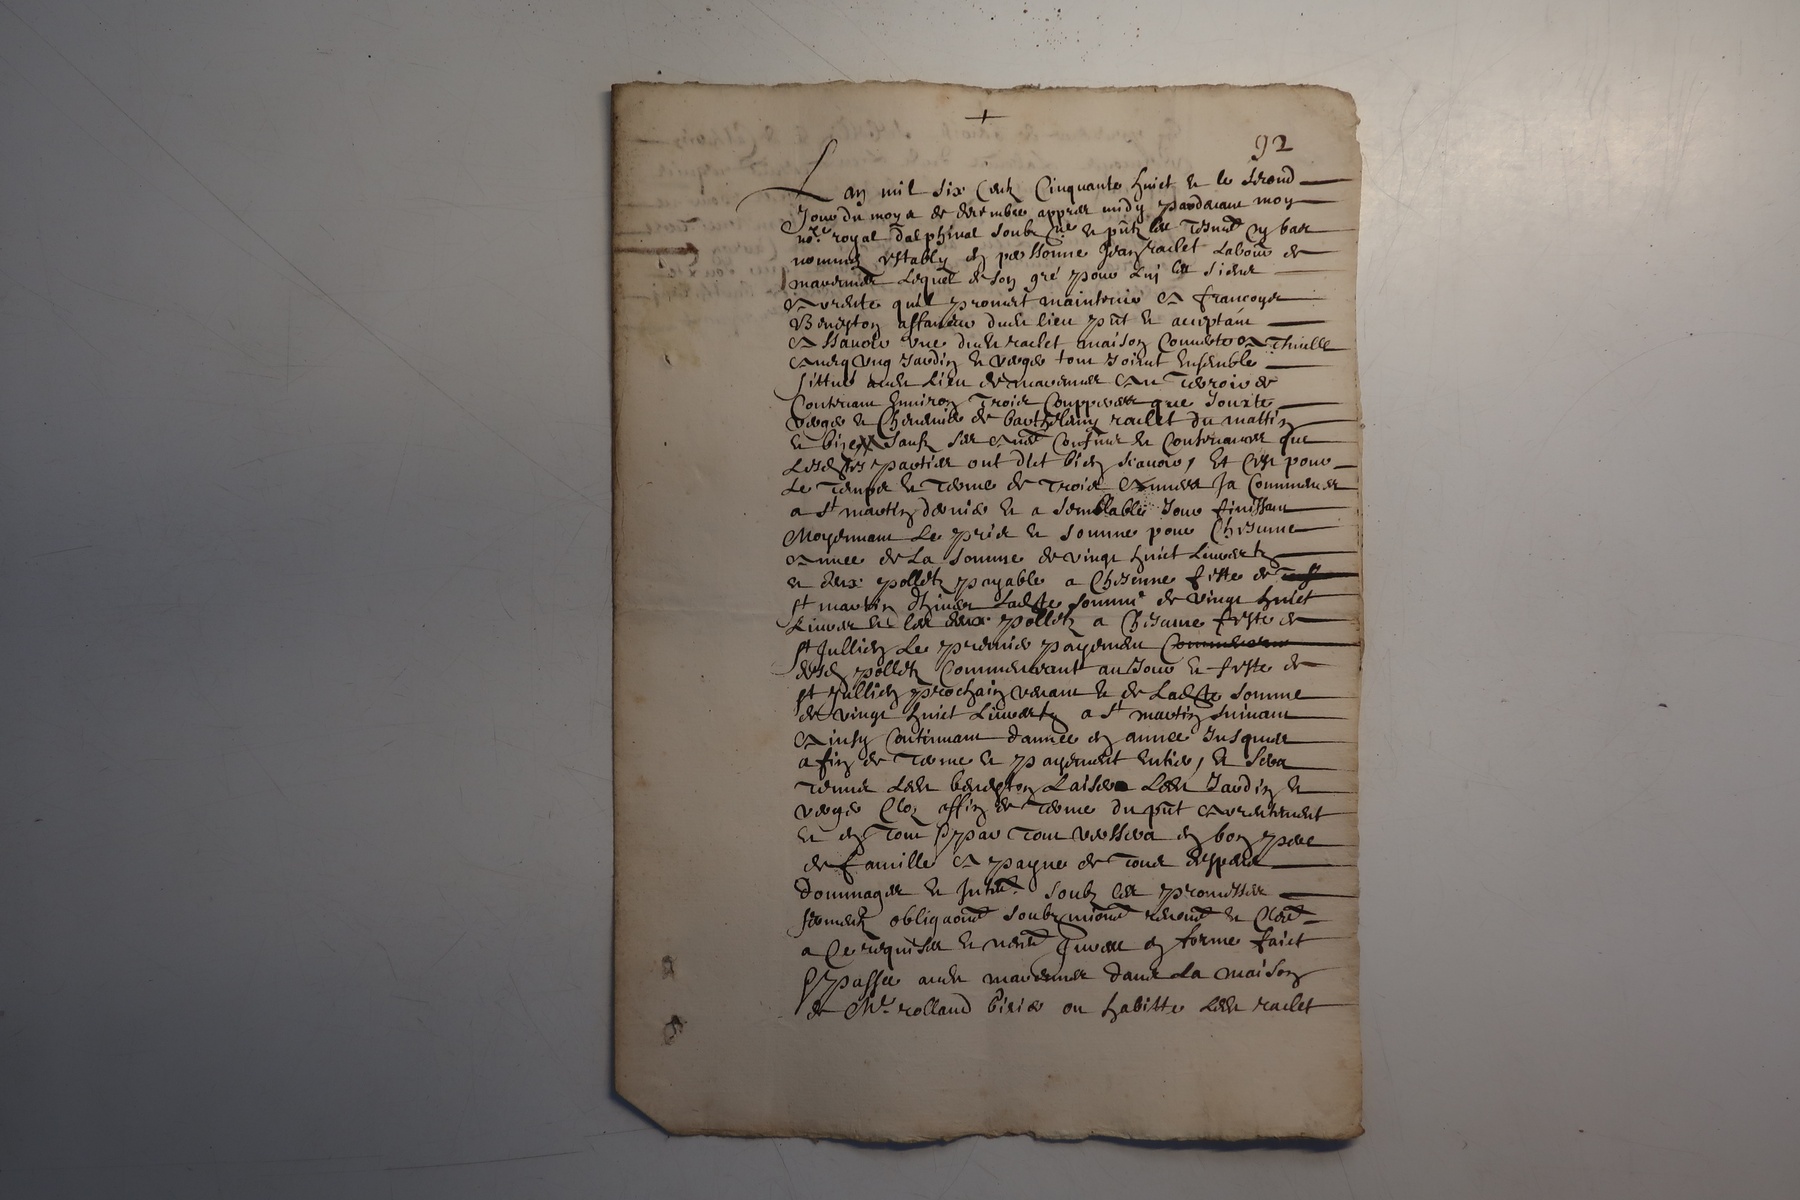 +
92
Lan mil six centz Cinquante huict et le second
Jour du moys de decembre appres midy pardevant moy
no.re royal dalphinal soubz.ne et pntz les tesmoingz cy bas
nommés estably en personne Jean raclet Labour de
mavernier Lequel de son gré pour luy les siens
arrente quil promet maintenir a francoys
Benepton affaneur dudit lieu pnt et acceptant
assavoir une dudit raclet maison Couverte a Thuille
avecq ung Jardin et verger tout Joient Ensemble
sittue audit Lieu et terroir de
Contenant Environ Trois Coupperees que Jouxte
verger et Cheneviere de barthelemy raclet du mattin
et bize sauf ses autres Confins et Contenances que
Lesdites parties ont dict bien scavoir, Et C'est pour
Le temps et terme de trois annees Ja Commences
a st martin dernier et a semblable Jour finissant
Moyennant Le pris et somme pour Chescune
annee de La somme de vingt huict Livres tz
et deux polletz payable a Chescune feste de
st martin dhiver Ladte somme de vingt huict
Livres et les deux polletz a Chescune feste de
st Jullien Le premier payement
desd polletz Commencant au Jour et feste de
st Jullien prochain venant et de Ladte somme
de vingt huict Livres tz a st martin suivant
ainsy Continuant d'annee en annee Jusques
a fin de terme et payement entier, et sera
tenu Ledit benepton Laisser Ledit Jardin et
verger Clos affin de terme du pnt arrentement
et en tout et par tout versera en bon pere
de famille a payne de tous despens
dommages et Intes. soubz les promesses
sermentz obligaons soubzmions renons et Clauses
a Ce requises et neces en forme faict
et passe audit dans La maison
de Mr. rolland ou habitte Ledit raclet